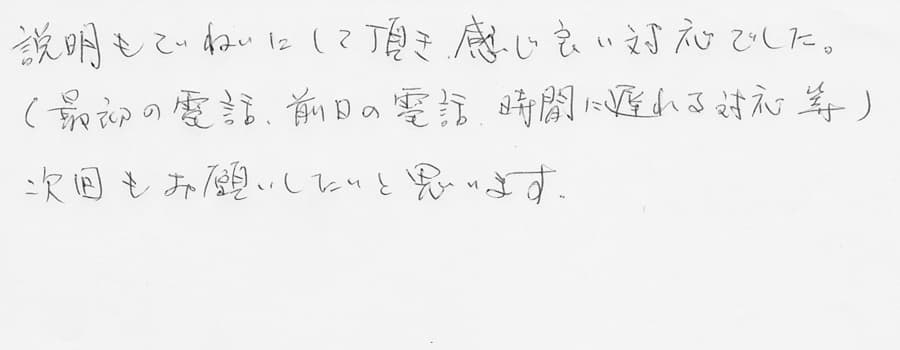 説明もていねいにして頂き、感じ良い対応でした。
(最初の電話、前日の電話、時間に遅れる対応等)
次回もお願いしたいと思います。